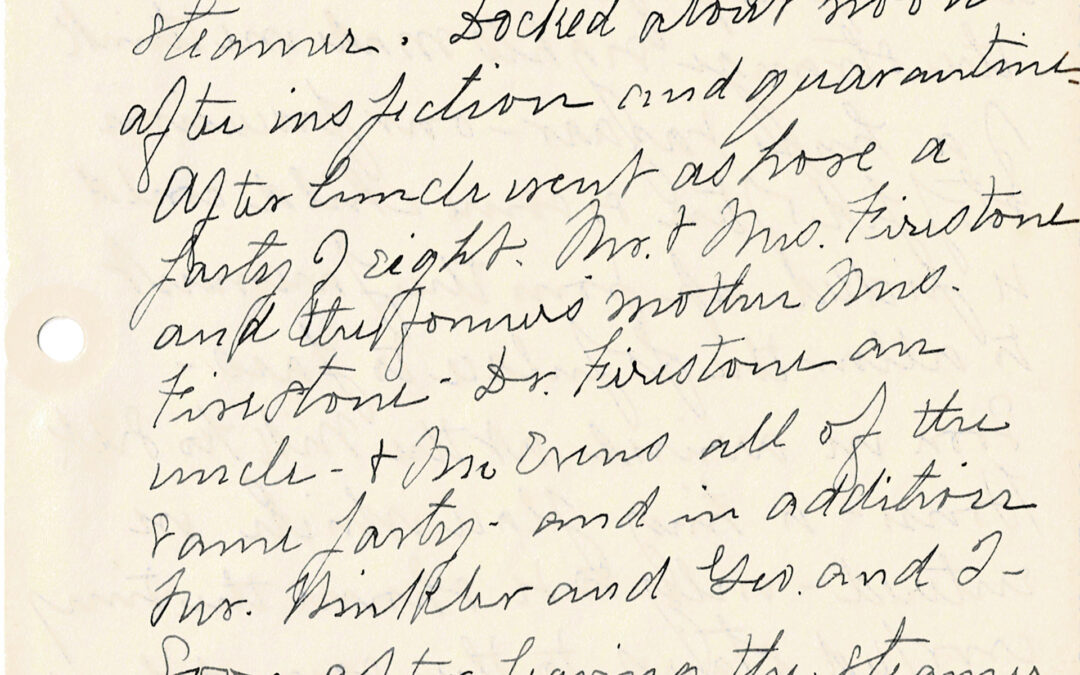 steamer. Docked about noon
after inspection and quarantine.
After lunch went ashore a
party of eight. Mr. & Mrs. Firestone
and the formers mother Mrs.
Firestone - Dr. Firestone an
uncle - & Mr. Evens all of the
same party - and in addition
Mr. Winkler and Geo. and I -
Soon after leaving the steamer